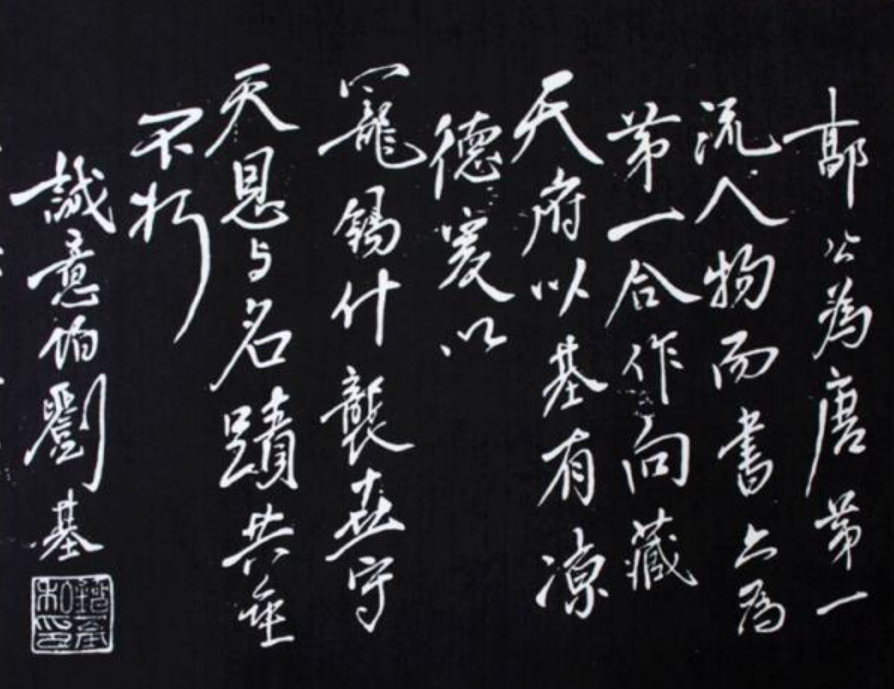 公為唐第一
流人物而書亦為
第一合作向藏
天府以基有涼
德爰以
寵錫什襲世守
天恩与名蹟共垂
不朽
誠意伯劉基